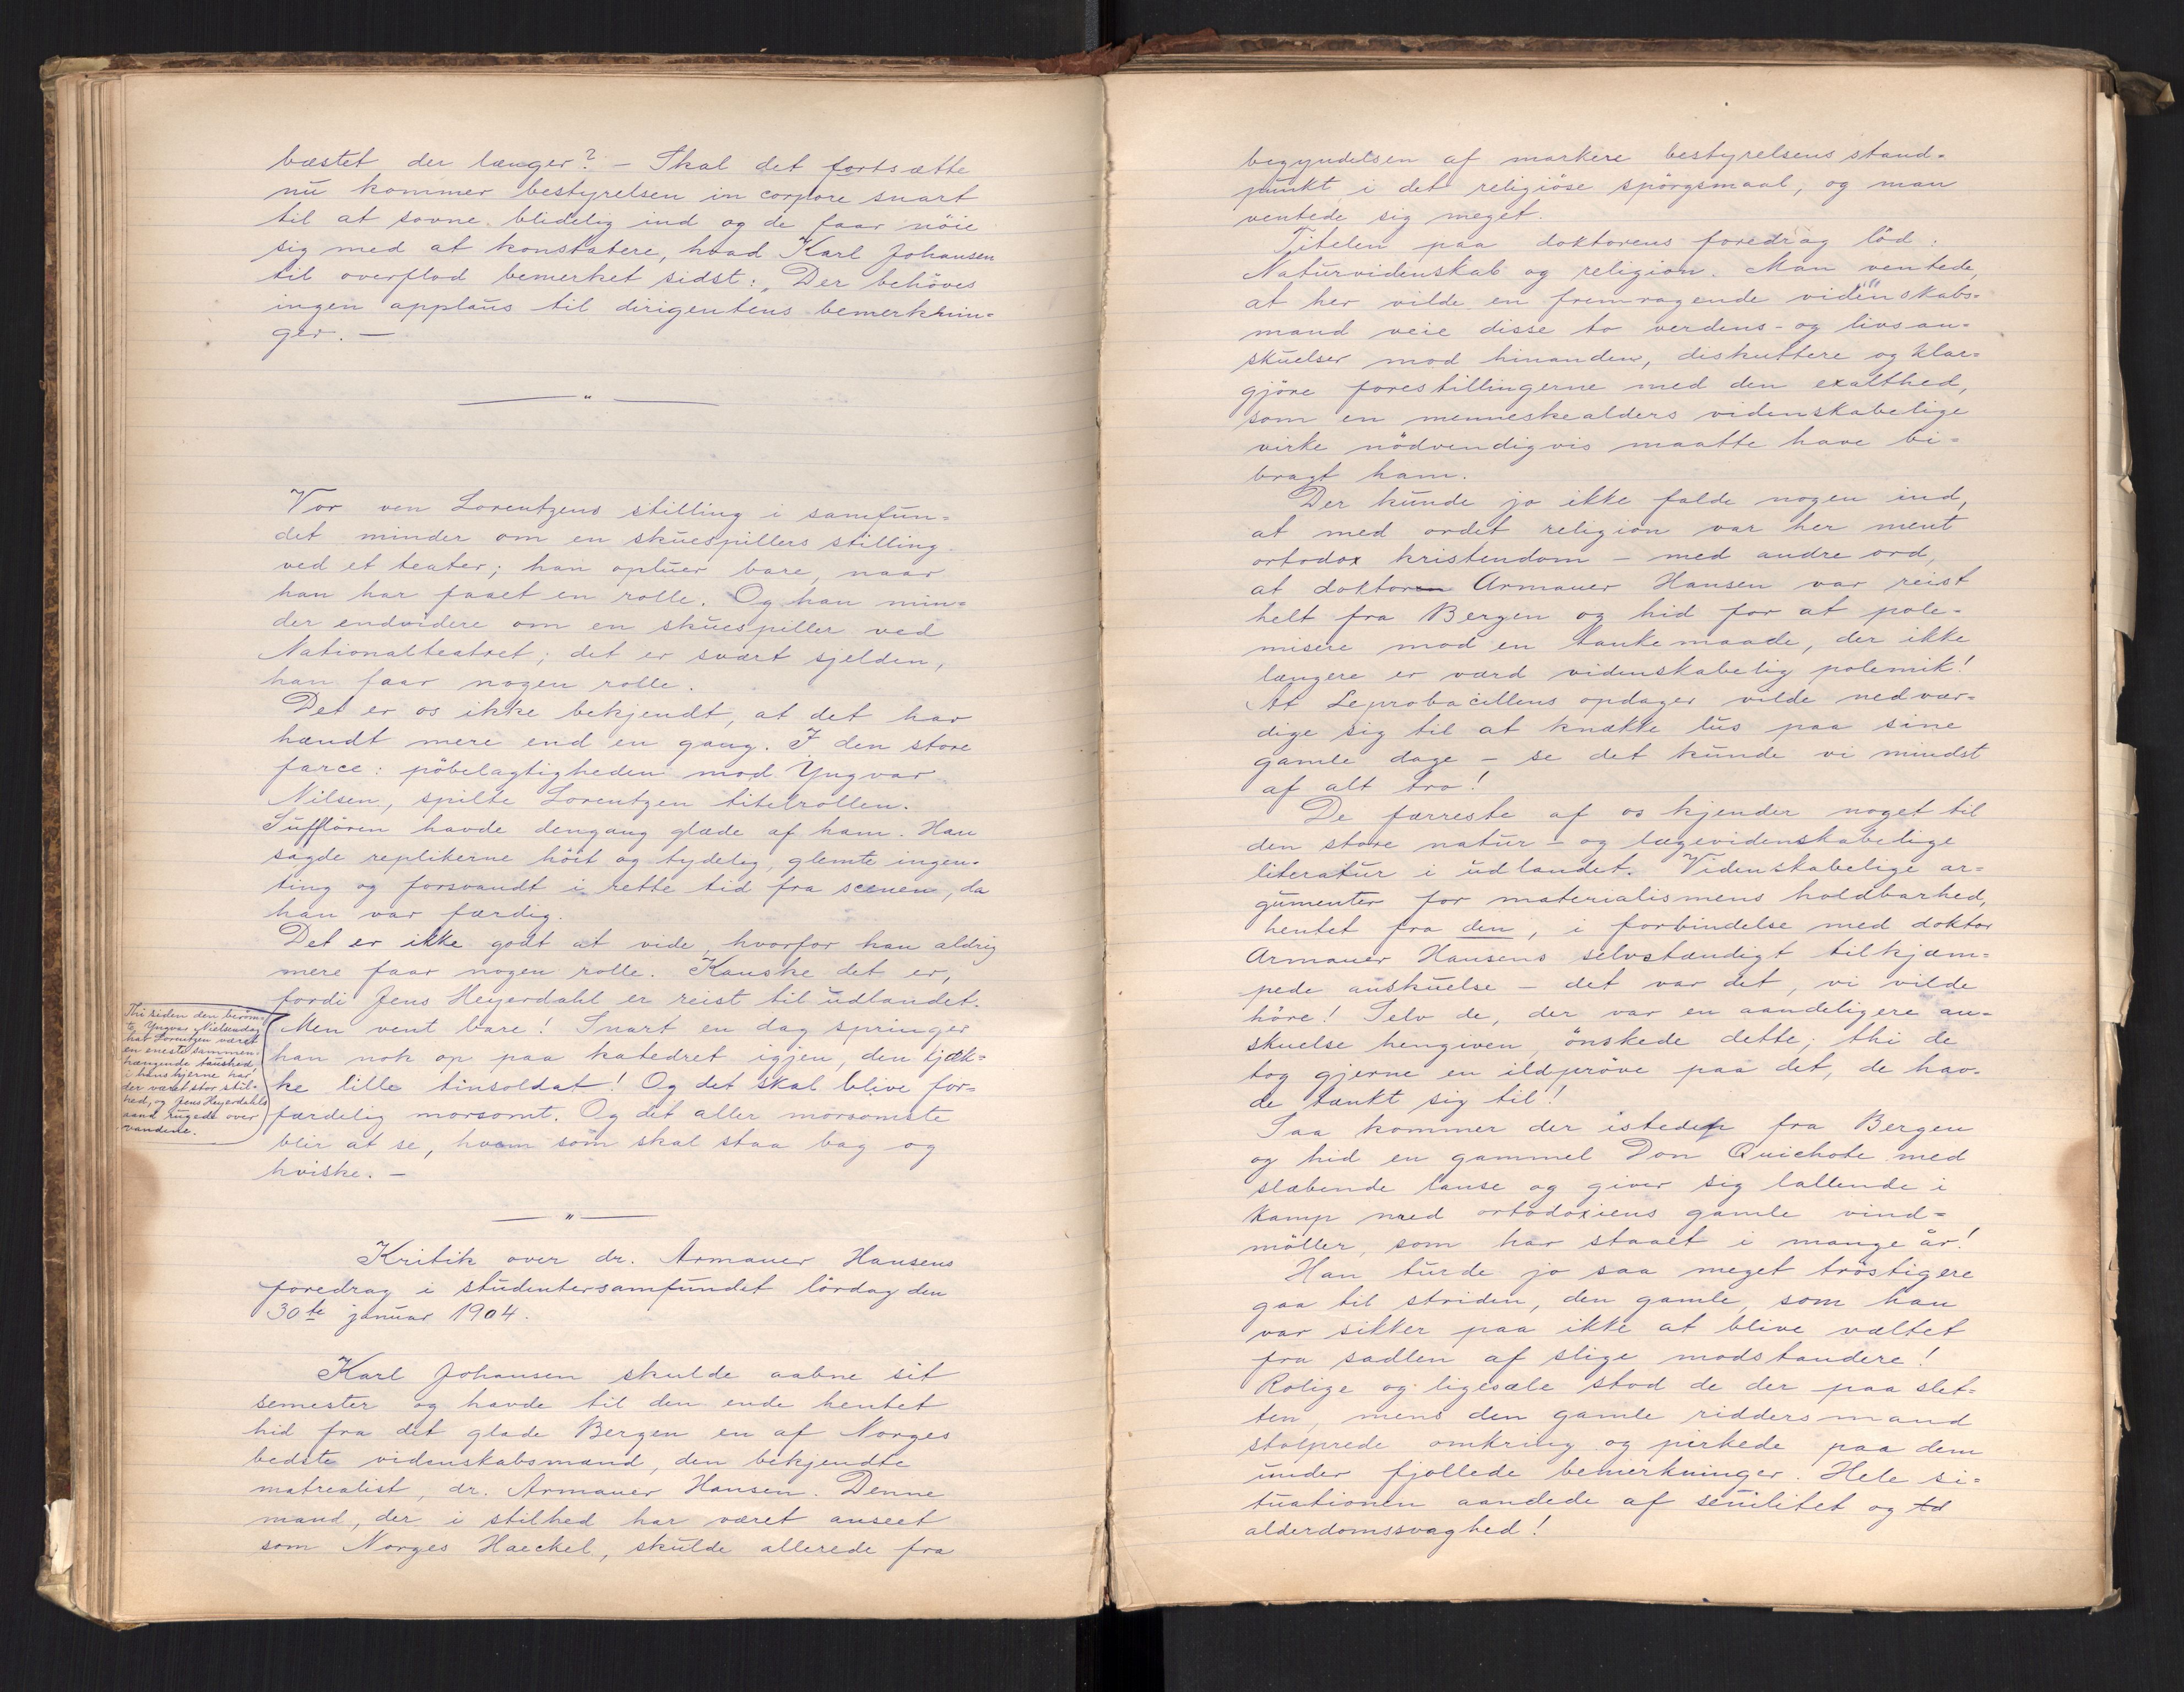 bæstet der længer? – Skal det fortsætte
nu kommer bestyrelsen in corpore snart
til at sovne blidelig ind og de faar nöie
sig med at konstatere, hvad Karl Johansen
til overflod bemerket sidst: „Der behöves
ingen applaus til dirigentens bemerknin=
ger. –
"
Vor ven Lorentzens stilling i samfun=
det minder om en skuespillers stilling
ved et teater; han optræer bare, naar
han har faaet en rolle. Og han min=
der endvidere om en skuespiller ved
Nationalteatret; det er svært sjelden,
han faar nogen rolle.
Det er os ikke bekjendt, at det har
hændt mere end en gang. I den store
farce: pöbelagtigheden mod Yngvar
Nilsen, spilte Lorentzen titelrollen.
Sufflören havde dengang glæde af ham. Han
sagde replikerne höit og tydelig, glemte ingen=
ting og forsvandt i rette tid fra scenen, da
han var færdig.
Det er ikke godt at vide, hvorfor han aldrig
mere faar nogen rolle. Kanske det er,
fordi Jens Heyerdahl er reist til udlandet.
Thi siden den beröm=
te Yngvar Nielsendag
har Lorentzen været
en eneste sammen=
hængende taushed,
i hans hjerne har
der været stor stil=
hed, og Jens Heyerdahls
aand rugede over
vandene.
Men vent bare! Snart en dag springer
han nok op paa katedret igjen, den kjæk=
ke lille tinsoldat! Og det skal blive for=
færdelig morsomt. Og det aller morsomste
blir at se, hvem som skal staa bag og
hviske. –
"
Kritik over dr. Armauer Hansens
foredrag i studentersamfundet lördag den
30te januar 1904.
Karl Johansen skulde aabne sit
semester og havde til den ende hentet
hid fra det glade Bergen en af Norges
bedste videnskabsmænd, den bekjendte
matrealist, dr. Armauer Hansen. Denne
mand, der i stilhed har været anseet
som Norges Haeckel, skulde allerede fra
begyndelsen af markere bestyrelsens stand=
punkt i det religiöse spörgsmaal, og man
ventede sig meget.
Titelen paa doktorens foredrag löd:
Naturvidenskab og religion. Man ventede,
at her vilde en fremragende videnskabs=
mand veie disse to verdens- og livsan=
skuelser mod hinanden, diskuttere og klar=
gjöre forestillingerne med den exakthed,
som en menneskealders videnskabelige
virke nödvendigvis maatte have bi=
bragt ham.
Der kunde jo ikke falde nogen ind,
at med ordet religion var her ment
ortodox kristendom – med andre ord,
at doktoren Armauer Hansen var reist
helt fra Bergen og hid for at pole=
misere mod en tankemaade, der ikke
længere er værd videnskabelig polemik!
At Leprabacillens opdager vilde nedvær=
dige sig til at knække lus paa sine
gamle dage – se det kunde vi mindst
af alt tro!
De færreste af os kjender noget til
den store natur- og lægevidenskabelige
literatur i udlandet. Videnskabelige ar=
gumenter for materialismens holdbarhed,
hentet fra den, i forbindelse med doktor
Armauer Hansens selvstændigt tilkjæm=
pede anskuelse – det var det, vi vilde
höre! Selv de, der var en aandeligere an=
skuelse hengiven, önskede dette; thi de
tog gjerne en ildpröve paa det, de hav=
de tænkt sig til!
Saa kommer der istedet fra Bergen
og hid en gammel Don Quichote med
slæbende lanse og giver sig lallende i
kamp med ortodoxiens gamle vind=
möller, som har staaet i mange år!
Han turde jo saa meget tröstigere
gaa til striden, den gamle, som han
var sikker paa ikke at blive væltet
fra sadlen af slige modstandere!
Rolige og ligesæle stod de der paa slet=
ten, mens den gamle riddersmand
stolprede omkring og pirkede paa dem
under fjollede bemerkninger. Hele si=
tuationen aandede af senilitet og
alderdomssvaghed!